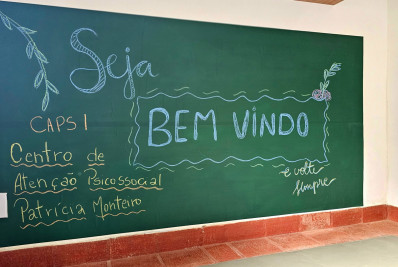 Seja
BEM VINDO
CAPS I
Centro de
Atenção Psicossocial
Patrícia Monteiro
e volte
sempre